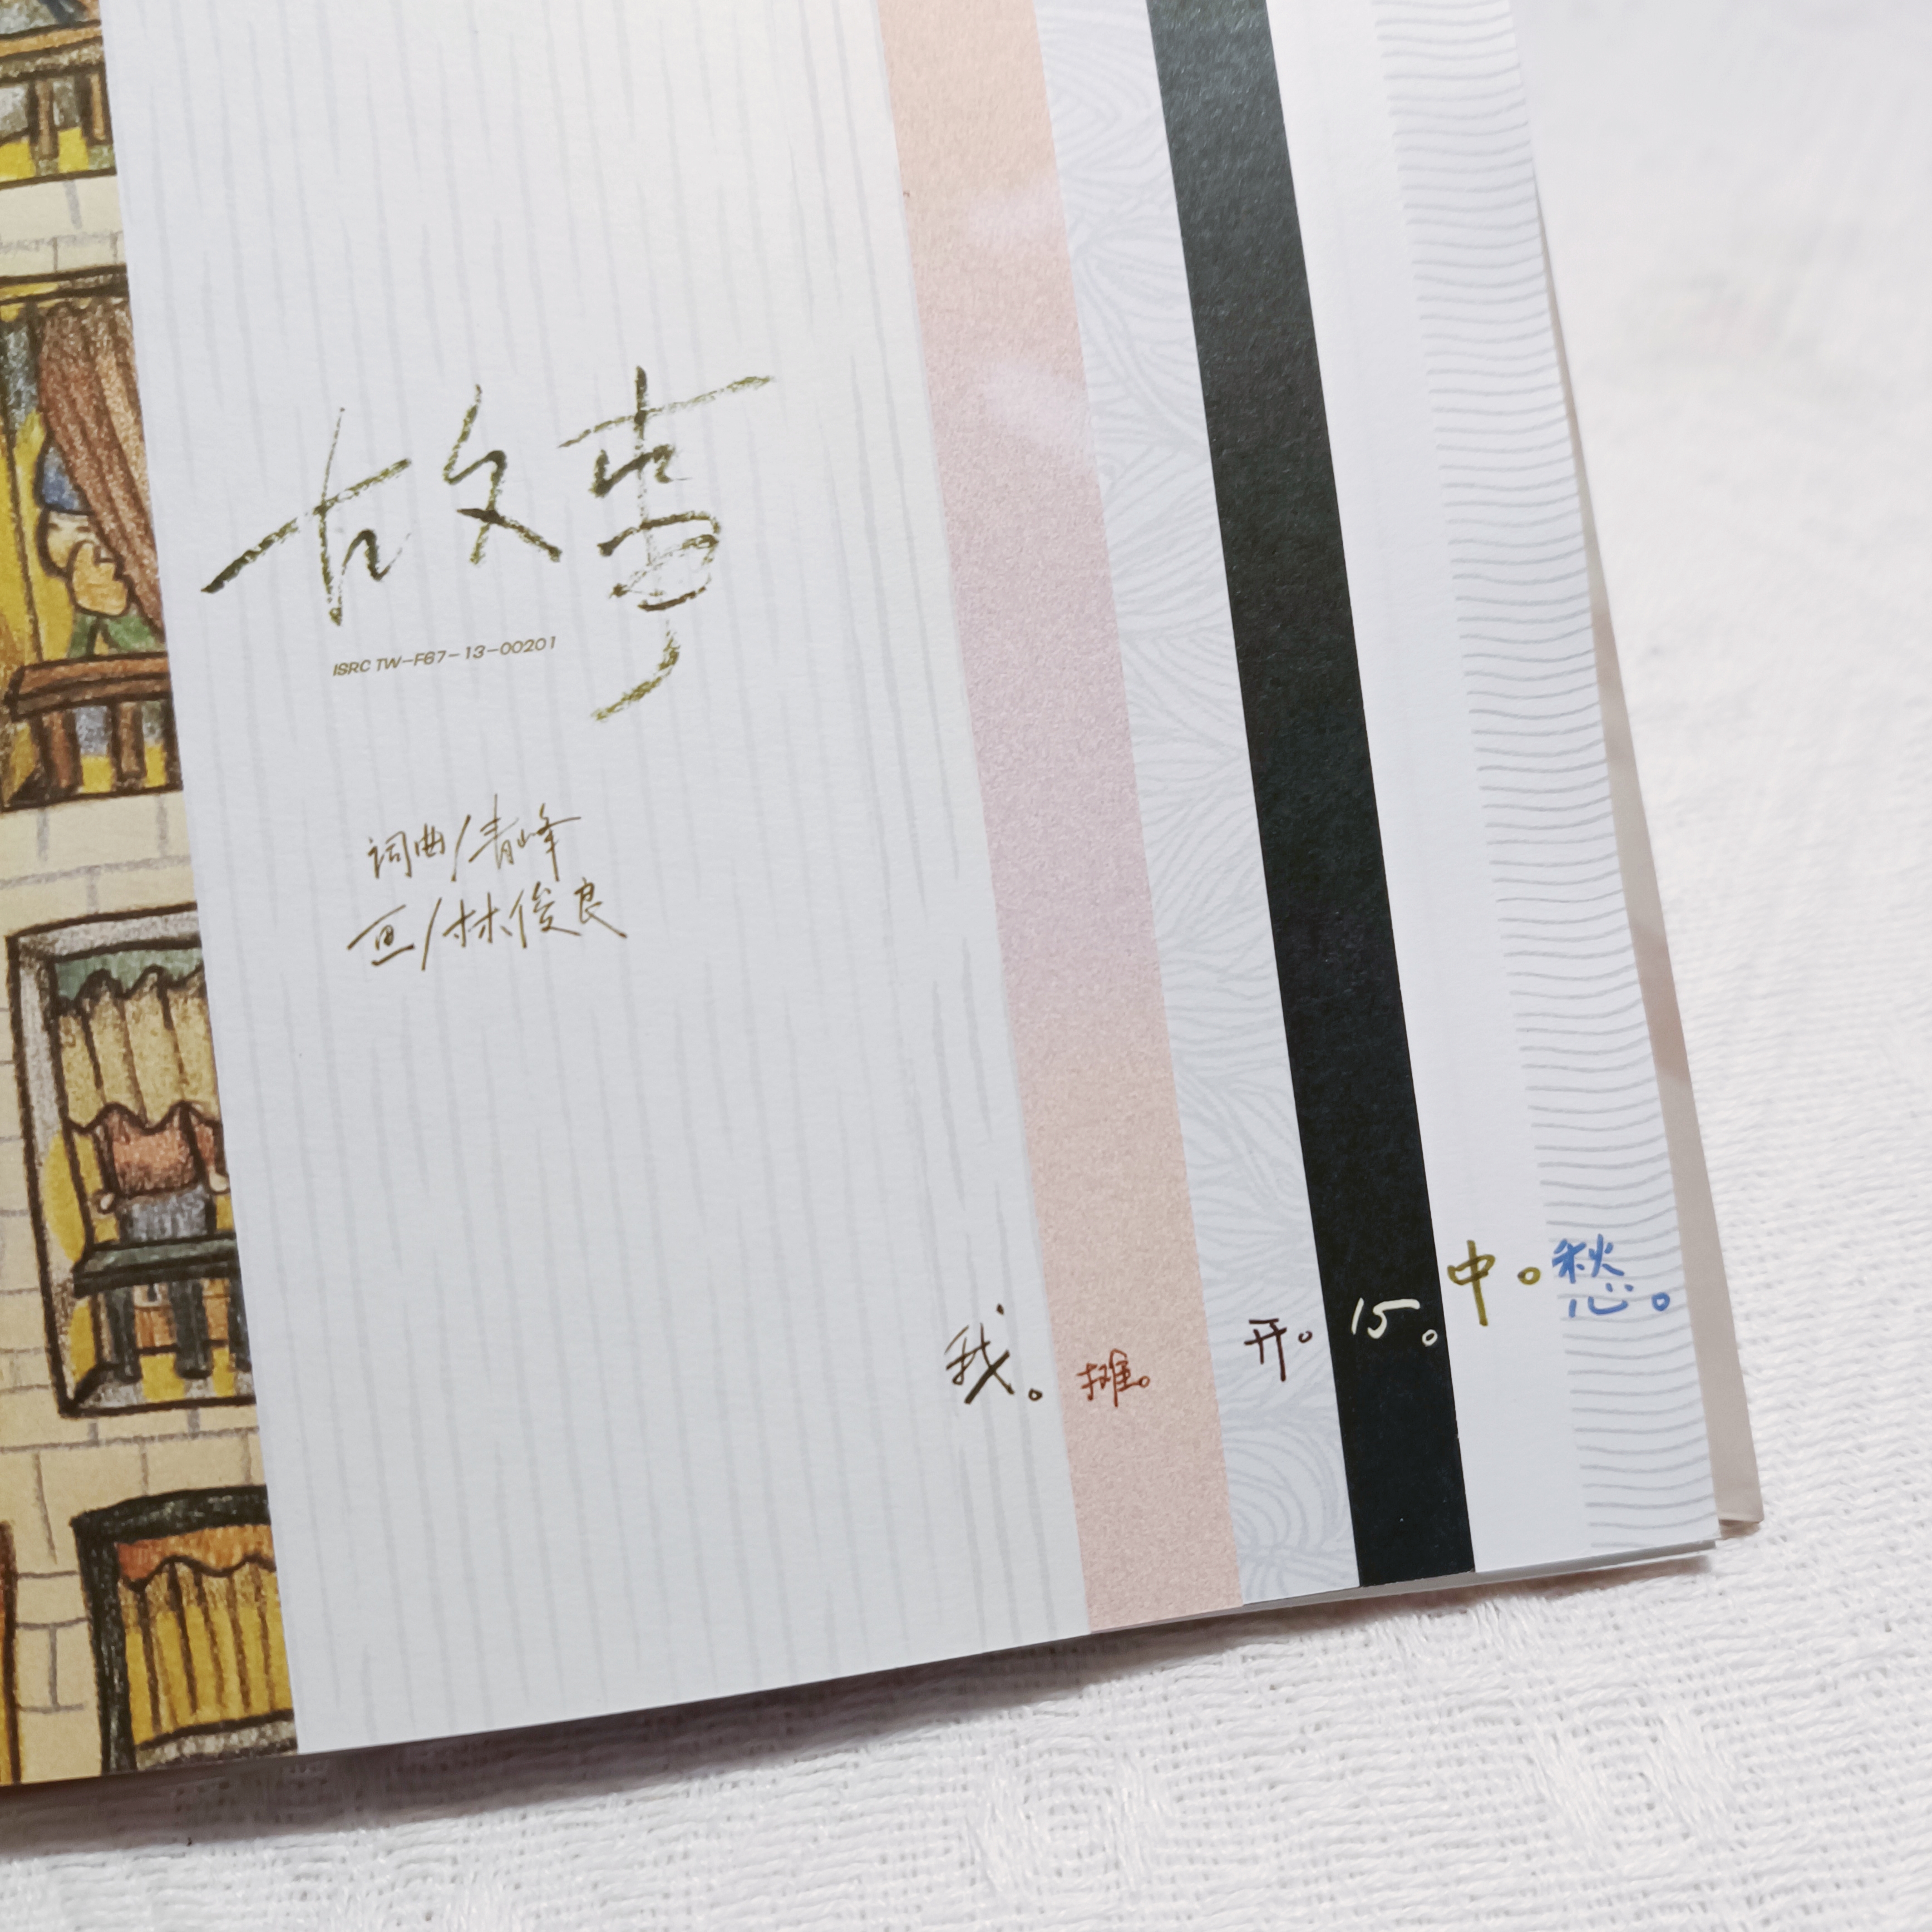 故事
ISRC TW-F67-13-00201
词曲/青峰
画/林俊良
我。摊。开。15。中。愁。